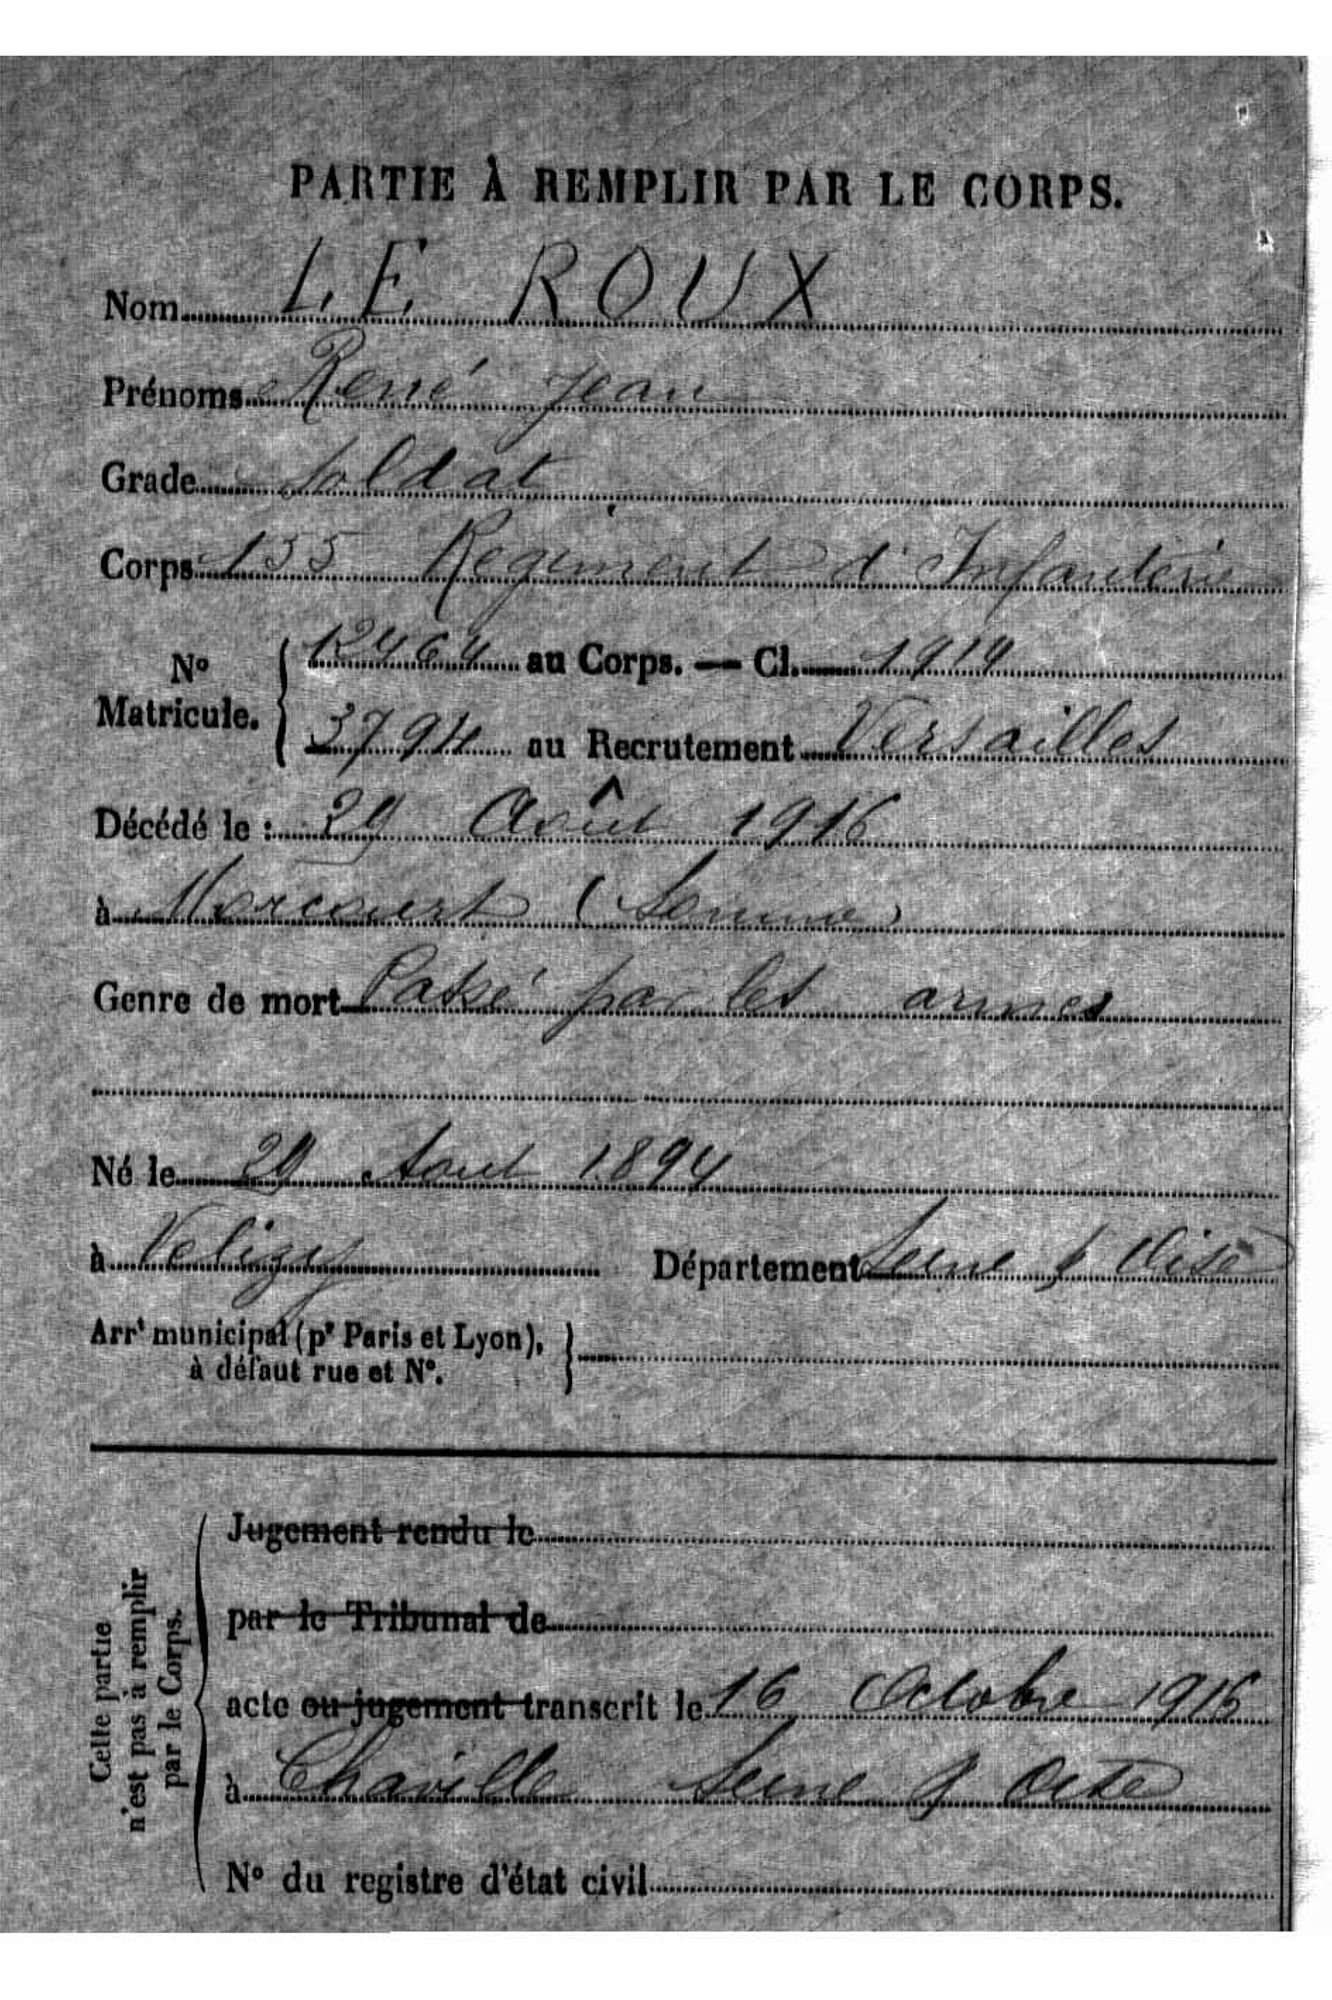 PARTIE À REMPLIR PAR LE CORPS.
Nom LE ROUX
Prénoms René Jean
Grade Soldat
Corps 155 Régiment d'Infanterie
N° Matricule. 12464 au Corps. — Cl. 1914
3794 au Recrutement Versailles
Décédé le : 29 Août 1916
à Morcourt (Somme)
Genre de mort Passé par les armes
Né le 29 Aout 1894
à Velizy Département Seine & Oise
Arrt municipal (pr Paris et Lyon),
à défaut rue et N°.
Cette partie
n'est pas à remplir
par le Corps.
Jugement rendu le
par le Tribunal de
acte ou jugement transcrit le 16 Octobre 1916
à Chaville Seine & Oise
N° du registre d'état civil